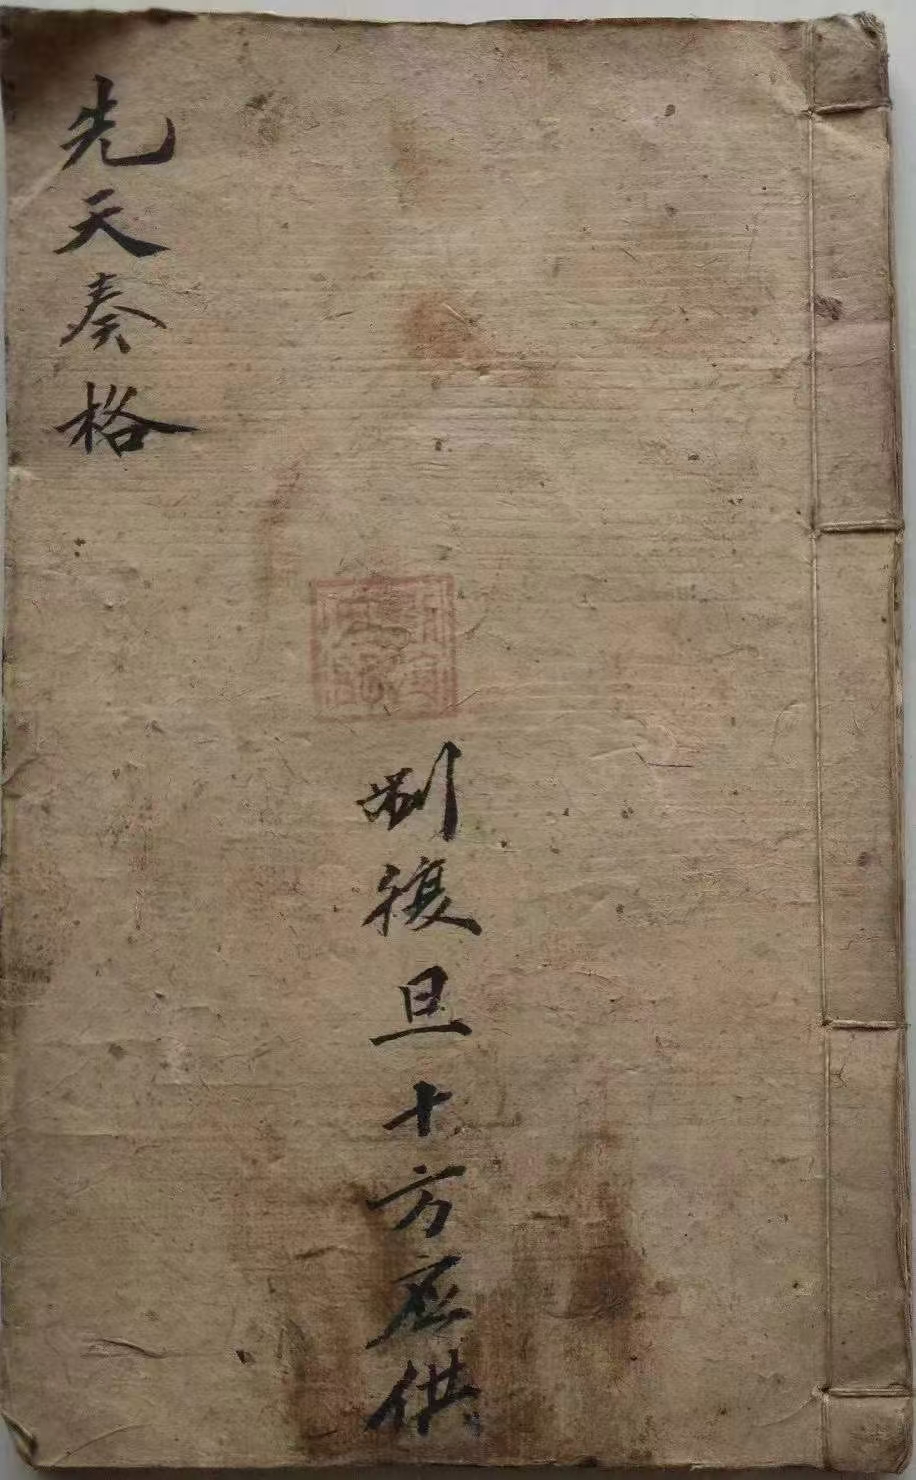 先天奏格
復旦十方应供